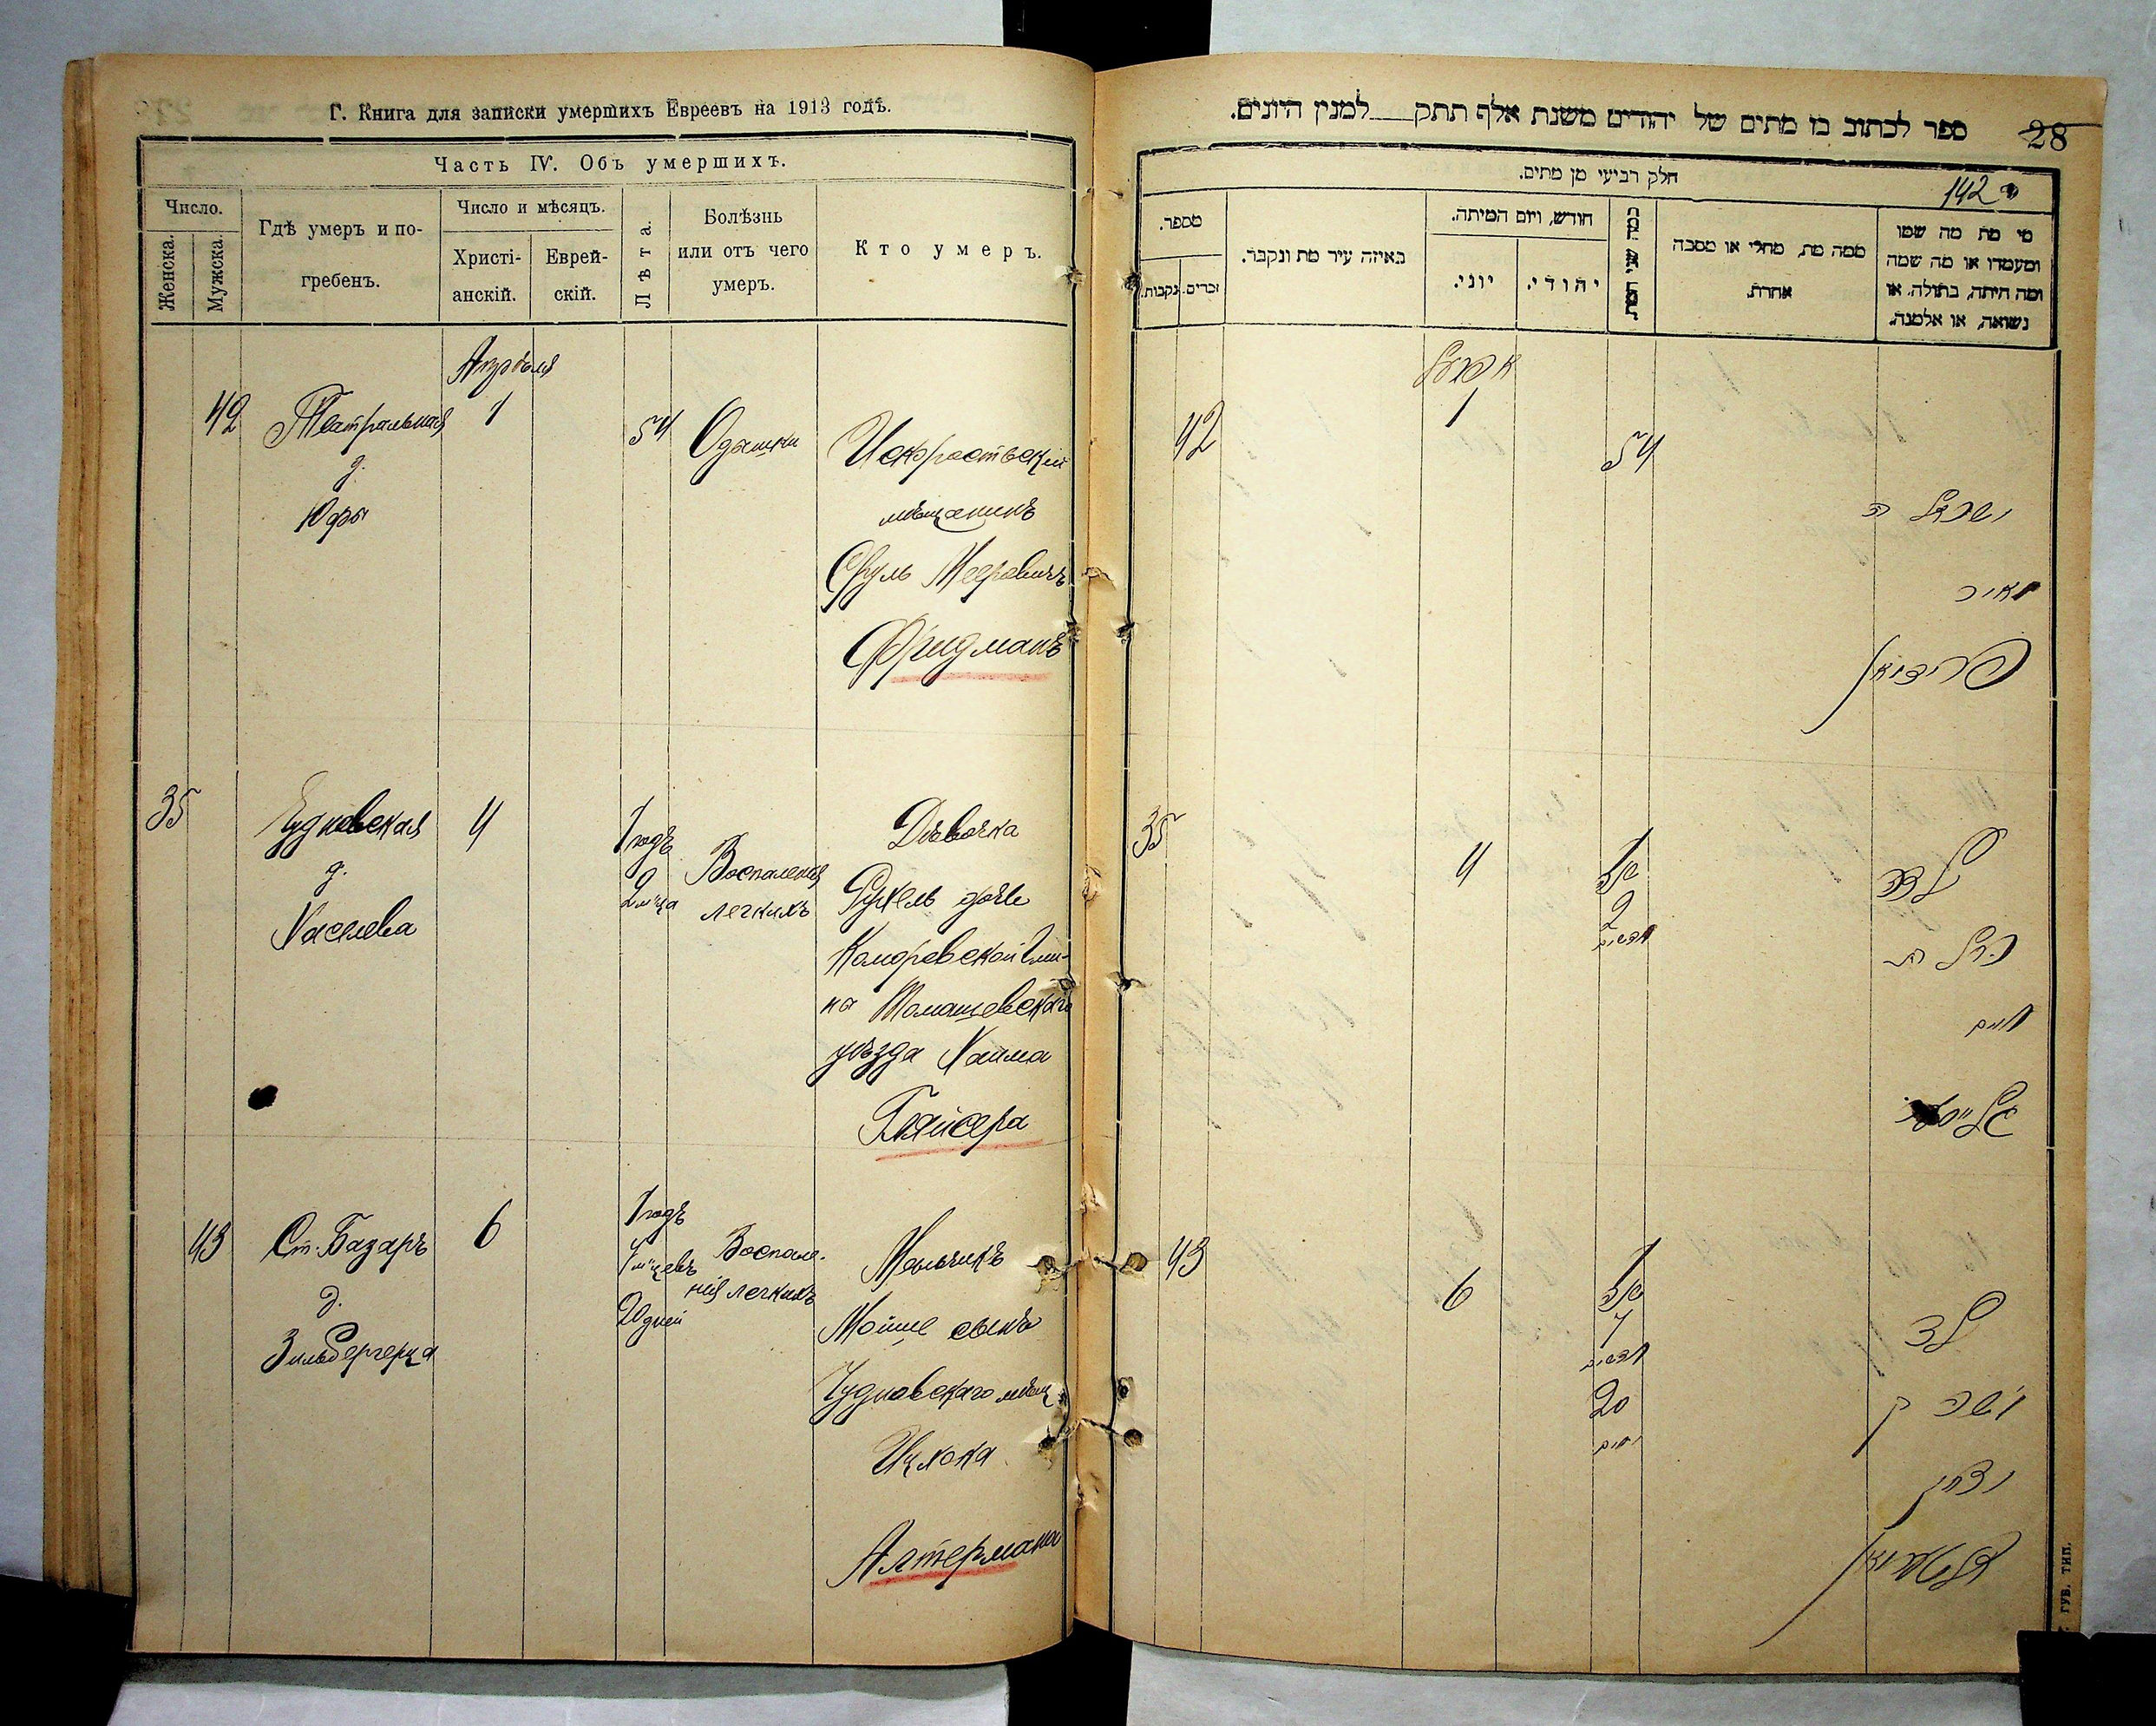 Г. Книга для записки умершихъ Евреевъ на 1913 годъ.
Часть IV. Объ умершихъ.
Число.
Женска.
Мужска.
Гдѣ умеръ и по-
гребенъ.
Число и мѣсяцъ.
Христі-
анскій.
Еврей-
скій.
Лѣта.
Болѣзнь
или отъ чего
умеръ.
Кто умеръ.
Апрѣля
42
Театральная
д.
Юфы
1
54
Одышки
Искоростьскій
мѣщанинъ
Сруль Мееровичъ
Фридманъ
35
Чудновская
д.
Хаселева
4
1 годъ
2 м-ца
Воспаленія
легкихъ
Дѣвочка
Рухель дочь
Коморовской Гми-
на Томашевскаго
уѣзда Хаима
Глайсера
43
Ст. Базаръ
д.
Зильбергерца
6
1 годъ
7 м-цевъ
20 дней
Воспале-
нія легкихъ
Мальчикъ
Мойше сынъ
Чудновскаго мѣщ
Ицхока
Алтермана
ספר לכתוב בו מתים של יהודים משנת אלף תתק למנין היונים.
28
חלק רביעי מן מתים.
142
מספר.
זכרים.
נקבות.
באיזה עיר מת ונקבר.
חודש, ויום המיתה.
יוני.
יהודי.
כמה שני המת
ממה מת, מחלי או מסבה
אחרת.
מי מת מה שמו
ומעמדו או מה שמה
ומה היתה, בתולה, או
נשואה, או אלמנה.
אפריל
42
1
54
ישראל ב
מאיר
פרידמאן
35
4
1
2
חדשים
ילדה
רחל בת
חיים
43
6
1
7
חדשים
20
ימים
ילד
משה בן
יצחק
אלטערמאן
ГУБ. ТИП.